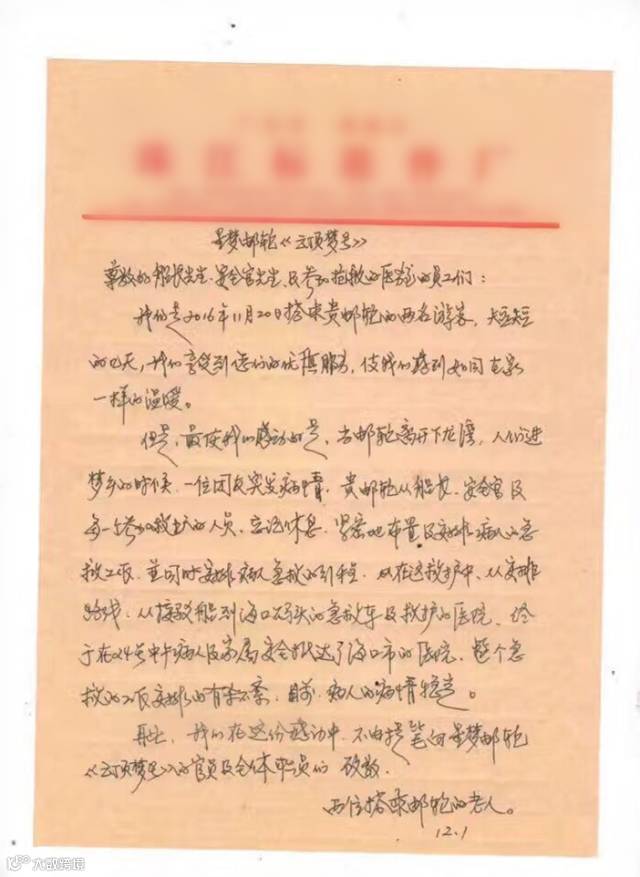 星梦邮轮《云顶梦号》
尊敬的船长先生、安全官先生、及参加抢救的医务的员工们：
我们是2016年11月20日搭乘贵邮轮的两名游客，短短
的4天，我们享受到您们的优质服务，使我们感到如同在家
一样的温暖。
但是，最使我们感动的是，当邮轮离开下龙湾，人们进
梦乡的时候，一位团友突发病情，贵邮轮从船长、安全官及
每一个参加救护的人员，忘记休息，紧密地布置及安排病人的急
救工作，并同时安排病人急救的引程，从在这救护中，从安排
路线、从接驳船到海口码头的急救车及救护的医院，终
于在24号中午病人及家属安全抵达了海口市的医院，整个急
救的工作安排的有条不紊，目前，病人的病情稳定。
再此，我们在这份感动中，不由提笔向星梦邮轮
《云顶梦号》的官员及全体职员们 致敬
两位搭乘邮轮的老人。
12.1
大数跨境